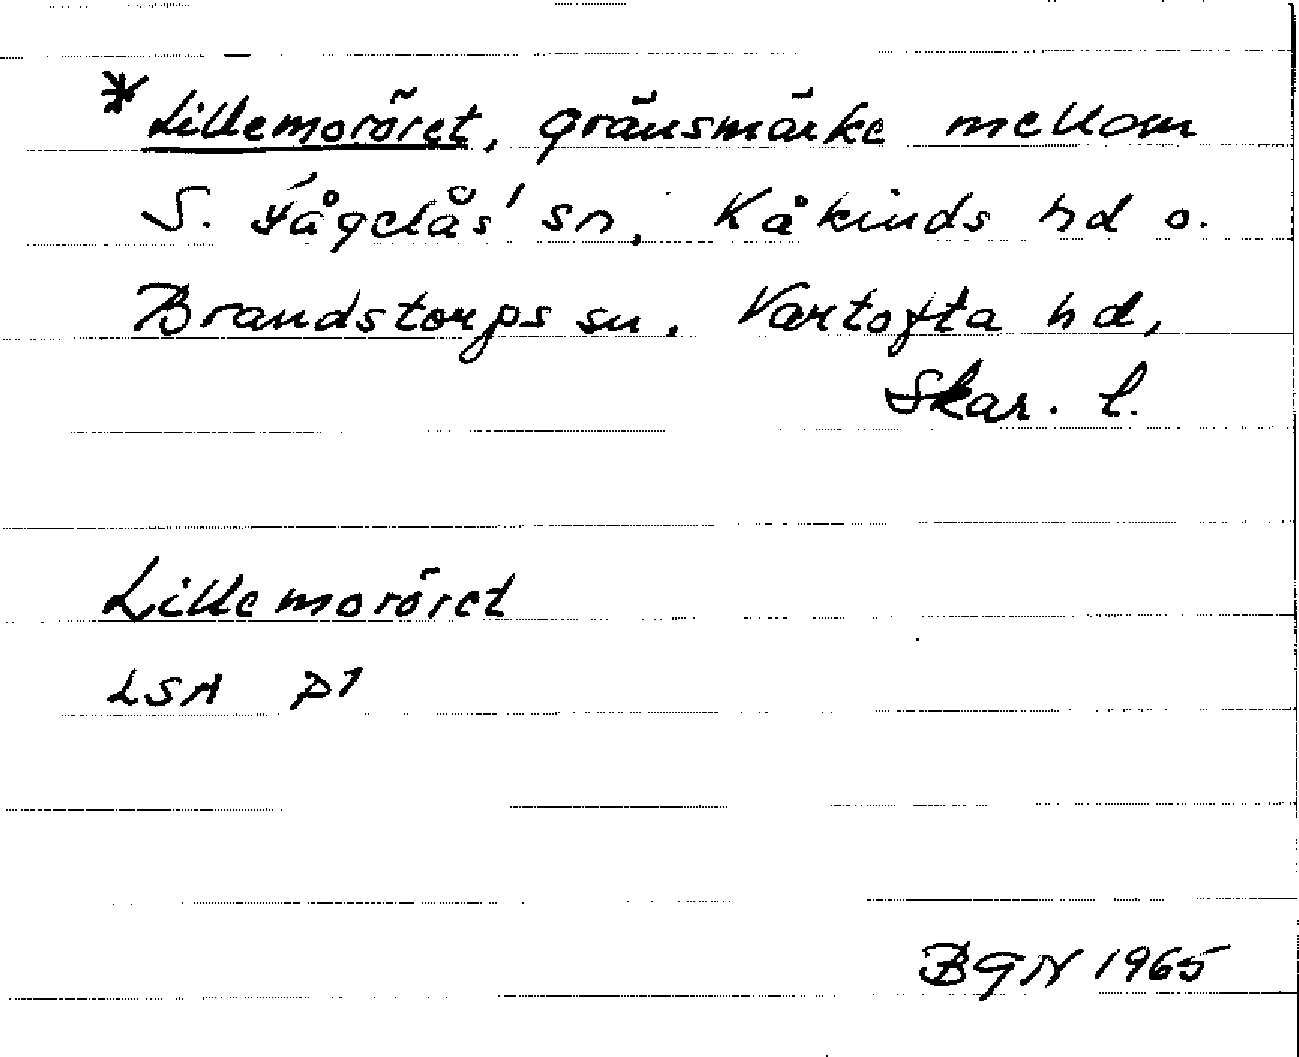 * Lillemoröret, gränsmärke mellom
S. Fågelås' sn, Kåkinds hd o.
Brandstorps sn. Vartofta hd,
Skar. l.
Lillemoröret
LSA P1
BGN 1965